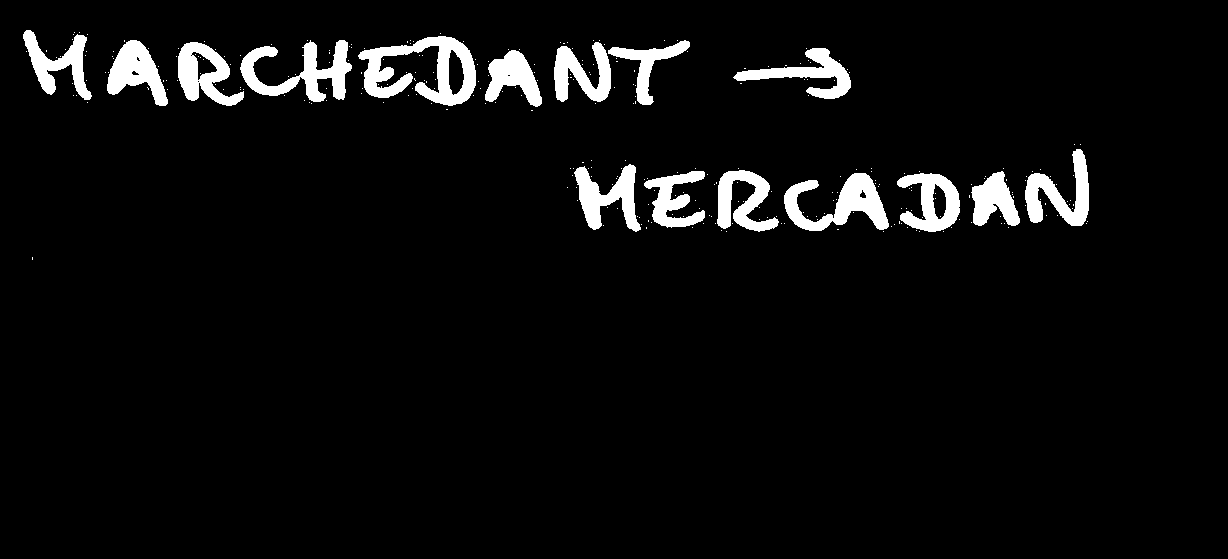 MARCHEDANT →
MERCADAN